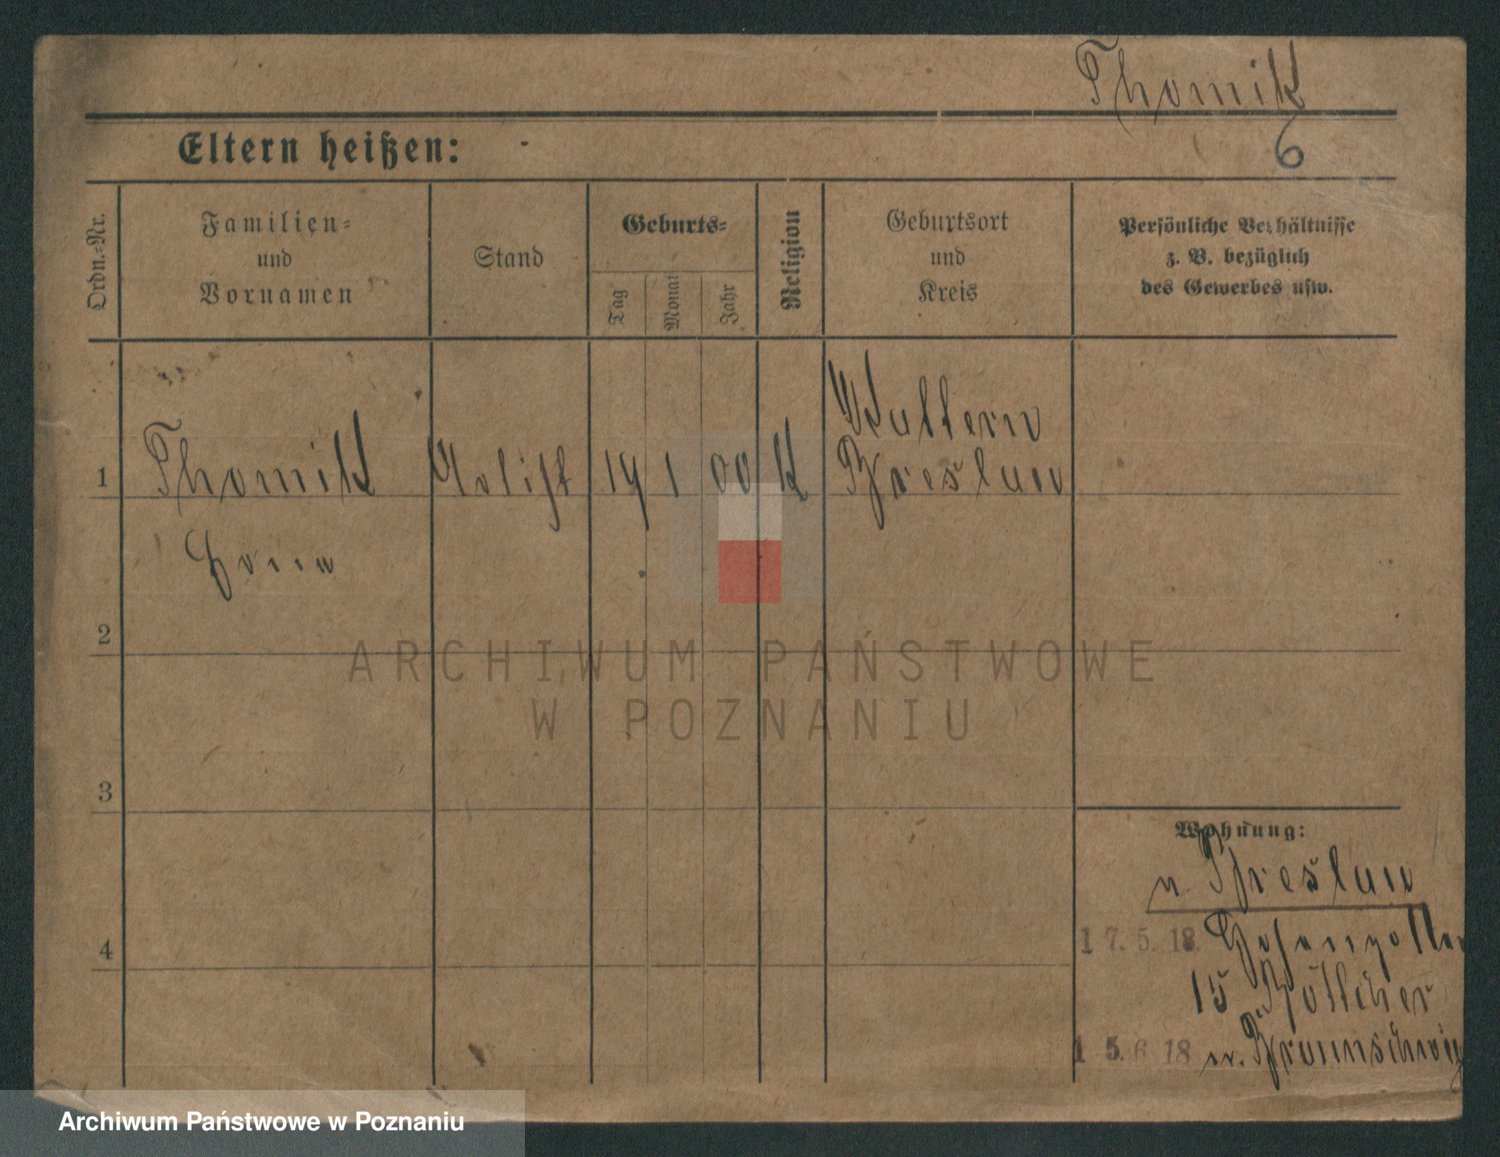 Thomik
6
Eltern heißen:
Ordn.-Nr.
Familien-
und
Vornamen
Stand
Geburts-
Tag
Monat
Jahr
Religion
Geburtsort
und
Kreis
Persönliche Verhältnisse
z. B. bezüglich
des Gewerbes usw.
1
Thomik
1
00
K
Breslau
2
ARCHIWUM PAŃSTWOWE
W POZNANIU
3
Wohnung:
n. Breslau
4
17. 5. 18
15 Böttcher
15. 6 18 n. Braunschweig
Archiwum Państwowe w Poznaniu